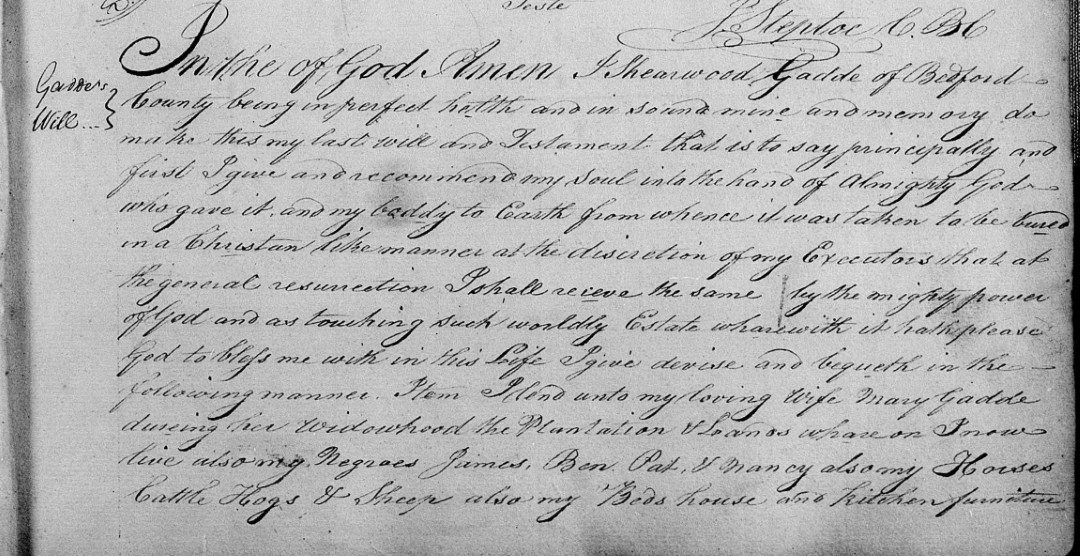 Teste
J. Steptoe C. B C
Gadde's
Will...
In the of God Amen I Shearwood Gadde of Bedford
County being in perfect helth and in sound mine and memory do
make this my last will and Testament that is to say principally and
first I give and recommend my Soul into the hand of Almighty God
who gave it, and my boddy to Earth from whence it was taken to be bured
in a Christan like manner at the discretion of my Executors that at
the general resurrection I shall recieve the same by the mighty power
of God and as touching such worldly Estate wharewith it hath please
God to bless me with in this Life I give devise and bequeth in the
following manner. Item I lend unto my loving Wife Mary Gadde
dureing her Widowhood the Plantation & Lands whare on I now
live also my Negroes James, Ben, Pat, & Nancy also my Horses
Cattle Hogs & Sheep also my Beds house and kitchen furniture